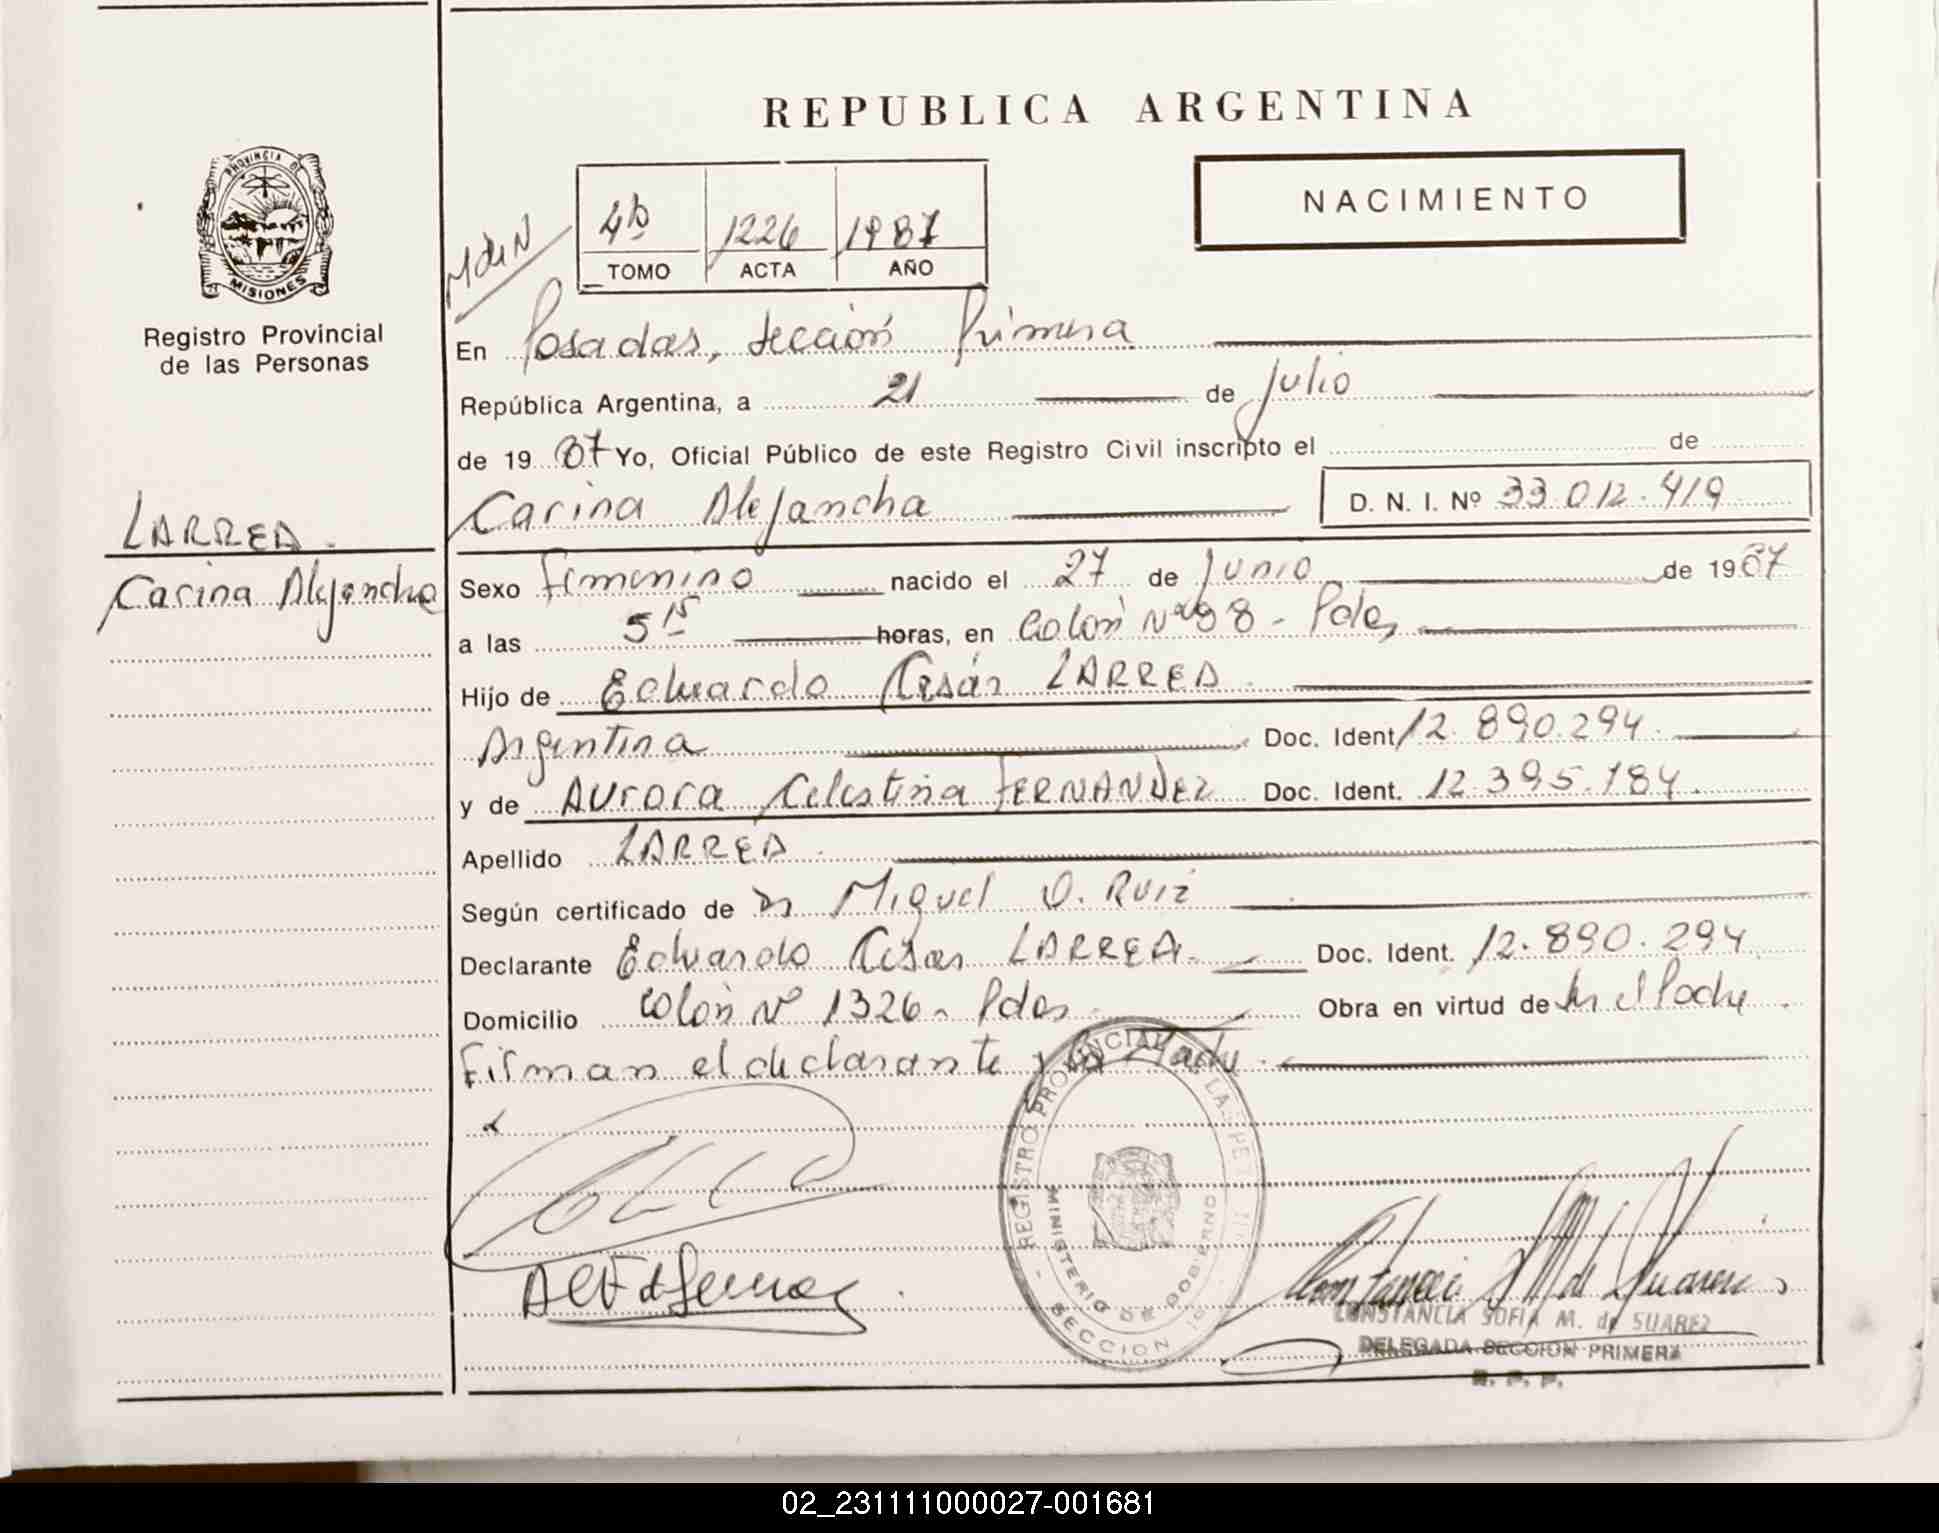 REPUBLICA ARGENTINA
NACIMIENTO
PROVINCIA DE
MISIONES
Registro Provincial
de las Personas
4to 1226 1987
TOMO ACTA AÑO
En Posadas, Sección Primera
República Argentina, a 21 de Julio
de 1987 Yo, Oficial Público de este Registro Civil inscripto el de
Carina Alejandra D. N. I. Nº 33.012.419
LARREA.
Carina Alejandra
Sexo Femenino nacido el 27 de Junio de 1987
a las 5 15 horas, en Colón Nº - Pdas,
Hijo de Eduardo César LARREA.
Argentina Doc. Ident. 12.890.294.
y de Aurora Celestina FERNANDEZ Doc. Ident. 12.395.184.
Apellido LARREA.
Según certificado de Dr Miguel O. Ruiz
Declarante Eduardo César LARREA. Doc. Ident. 12.890.294
Domicilio Colón Nº 1326 - Pdas. Obra en virtud de Ser el Padre.
Firman el declarante y la Madre.
REGISTRO PROVINCIAL DE LAS PERSONAS
MINISTERIO DE GOBIERNO
SECCION 1º
CONSTANCIA SOFIA M. de SUAREZ
DELEGADA SECCION PRIMERA
R. P. P.
02_231111000027-001681